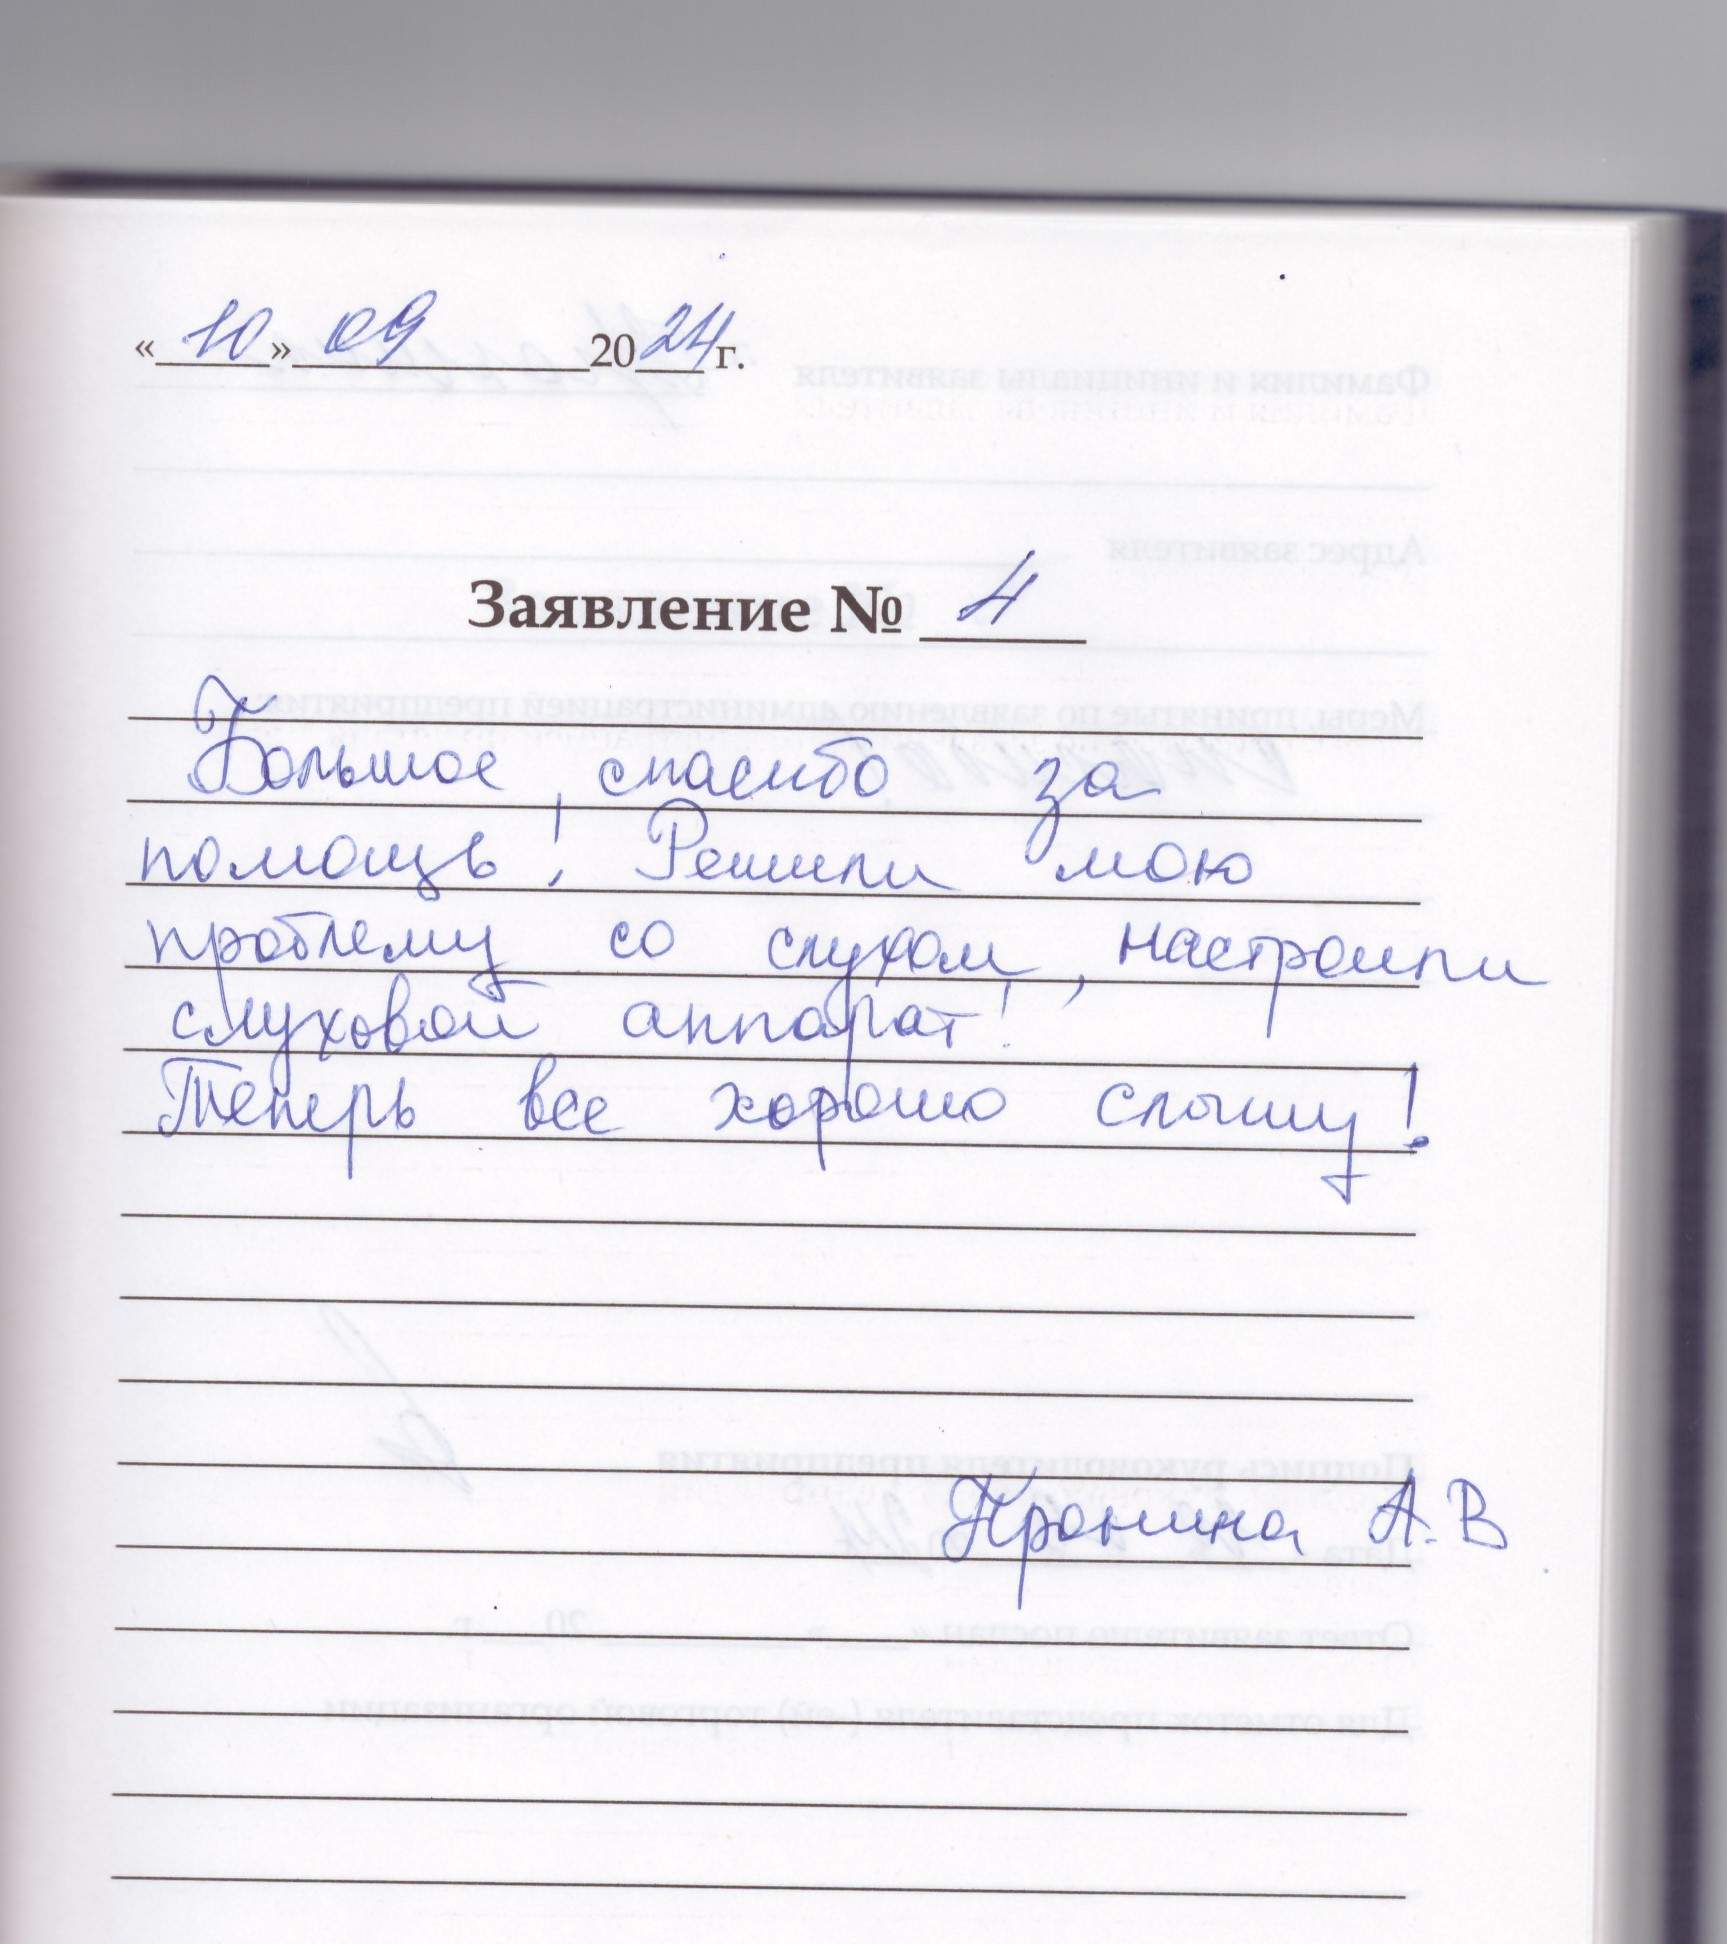 «10» 09 2024 г.
Заявление № 4
Большое спасибо за
помощь! Решили мою
проблему со слухом, настроили
слуховой аппарат!
Теперь все хорошо слышу!
Кронина А.В